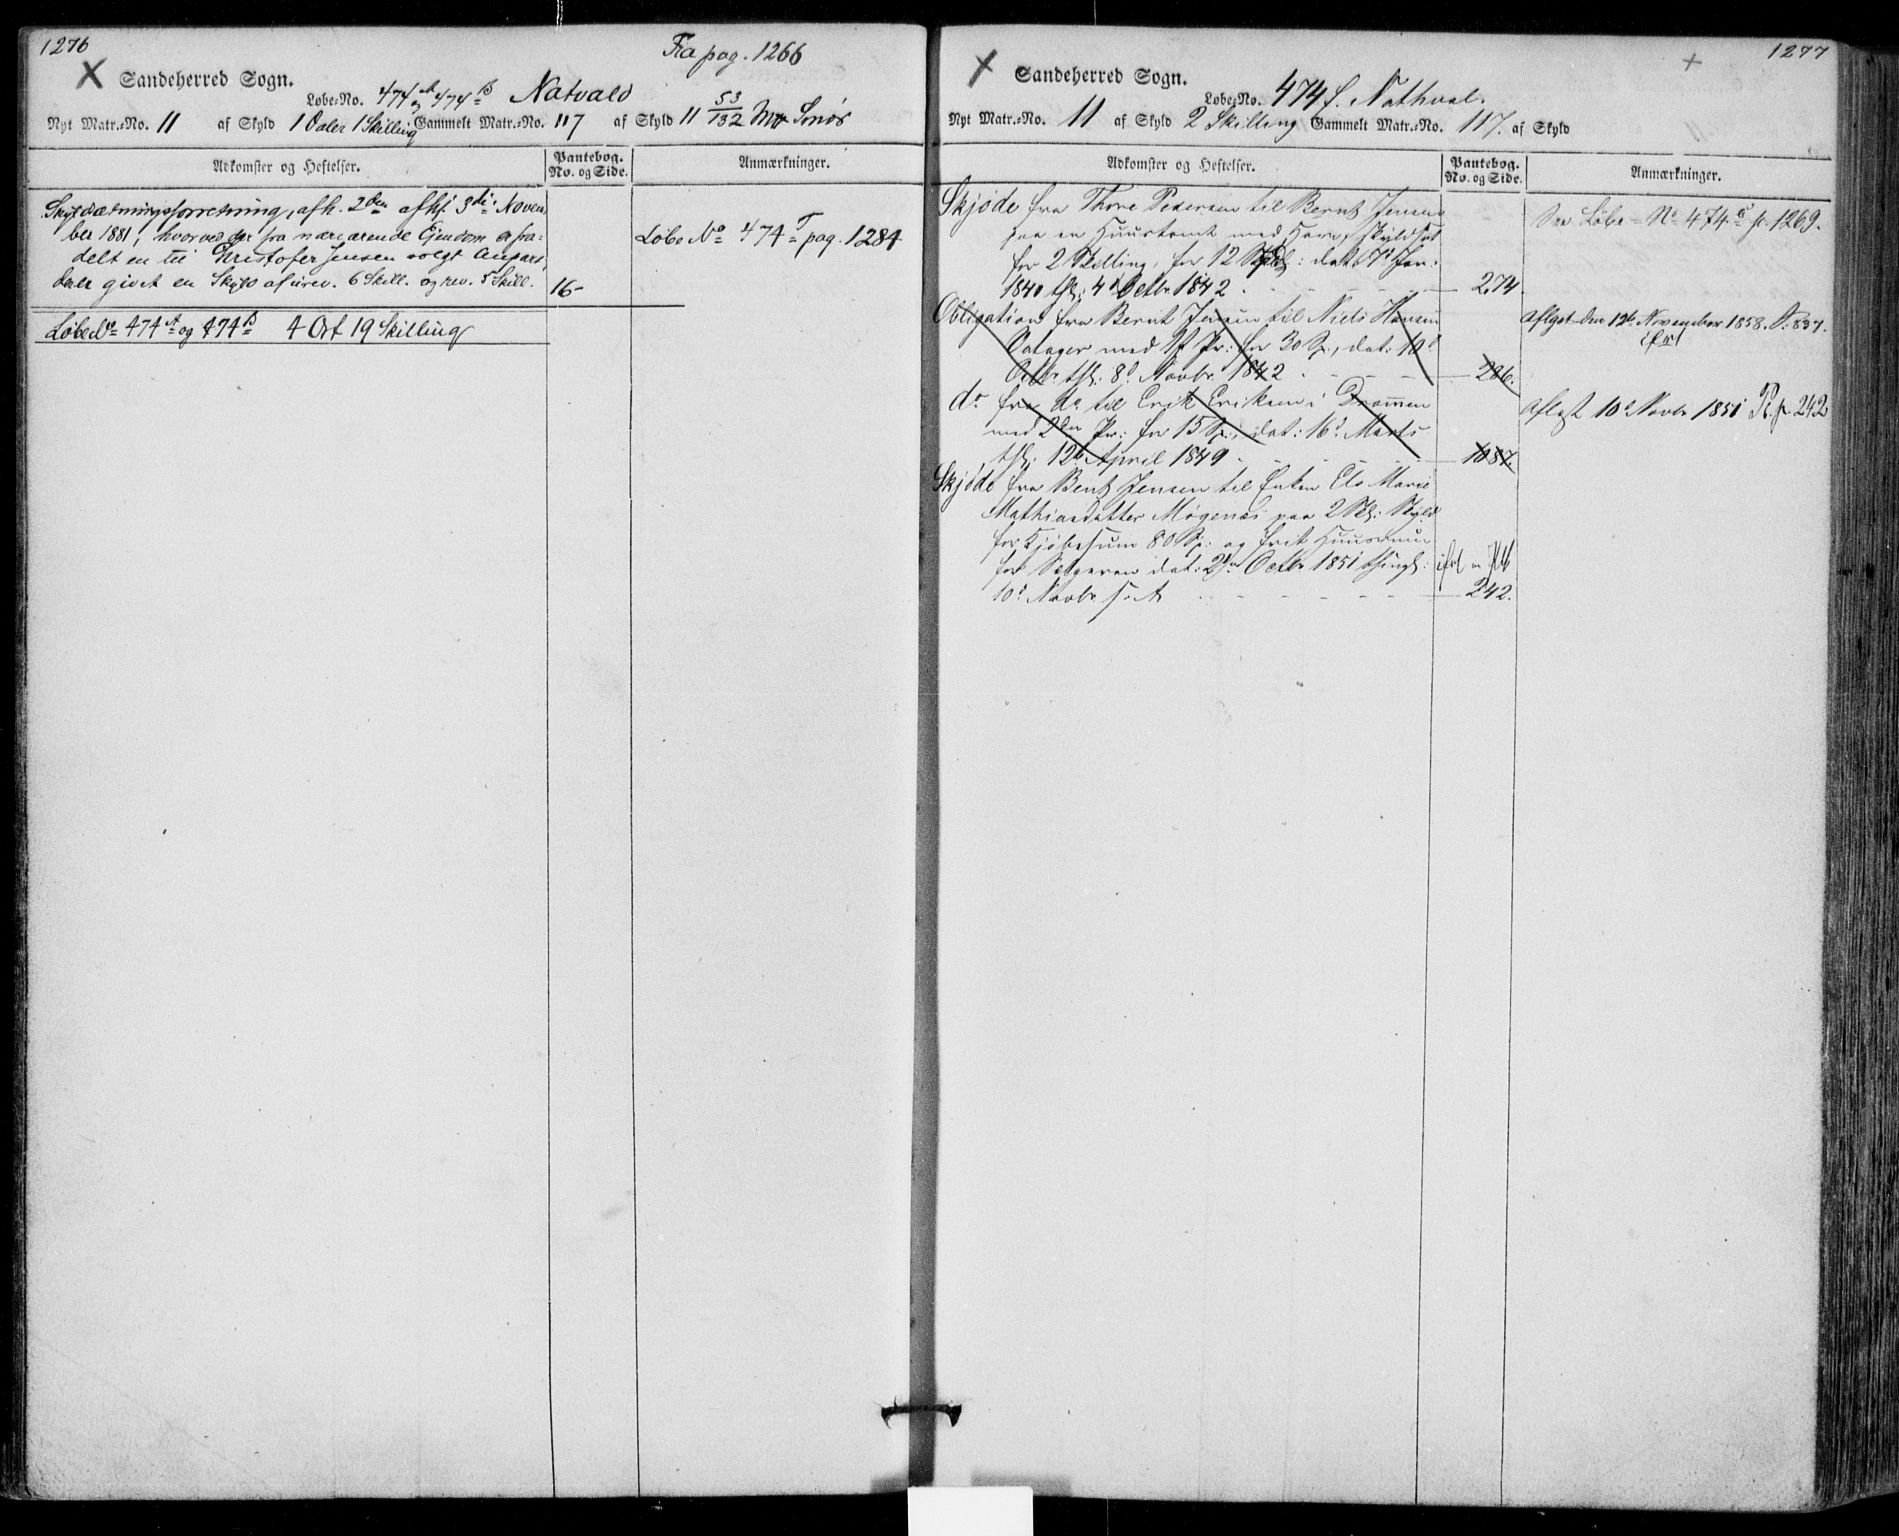 1276
Fra pag. 1266
X Sandeherred Sogn.
Løbe-No. 474 A og 474 B Natvald
Nyt Matr.-No. 11 af Skyld 1 Daler 1 Skilling Gammelt Matr.-No. 117 af Skyld 11 53/132 Smør
Adkomster og Heftelser.
Pantebog. No. og Side.
Anmærkninger.
Skyldsætningsforretning, afh. 2den afhj. 3die Novem
ber 1881, hvorved der fra nærværende Eiendom er fra-
delt en til Christofer Jensen solgt Anpart,
der givet en Skyld af urev. 6 Skill. og rev. 5 Skill.
16-
Løbe No 474 T pag. 1284
Løbe No 474 A og 474 B 4 Ort 19 Skilling
1277
X Sandeherred Sogn. +
Løbe-No. 474 f. Nathval.
Nyt Matr.-No. 11 af Skyld 2 Skilling Gammelt Matr.-No. 117. af Skyld
Adkomster og Heftelser.
Pantebog. No. og Side.
Anmærkninger.
Skjøde fra Thore Pedersen til Bernt Jensen
paa en Huustomt med Have, skyldsat
for 2 Skilling, for 12 dat: Jan:
1840 tgl: 4 Octbr 1842 - 274.
See Løbe-No 474 p. 1269.
Obligation fra Bernt Jensen til Niels Hansen
med Pr: for 30 Sp., dat: 10d
Octbr tgl: 8d Novbr 1842 - 286.
Aflyst den 12te November 1858.
do fra do til Erik Eriksen i Drammen
med 2den Pr: for 15 Sp., dat: 16d Marts
tgl: 12te April 1849 - 1087.
Aflyst 10d Novbr 1851 p. 242
Skjøde fra Bent Jensen til Enken Marie
Mathiasdatter paa 2 Sk: Skyld
for Kjøbesum 80 Sp: og frit Huusrum
for Sælgeren dat: Octbr 1851 thingl:
10d Novbr s. A. - 242.